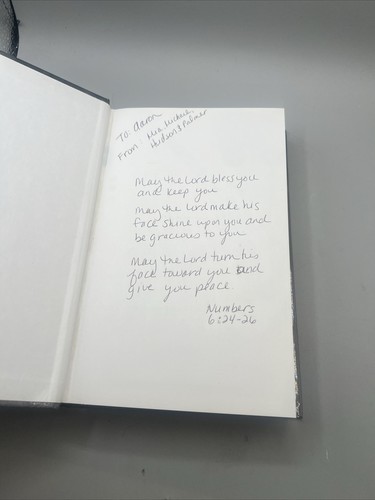 To: Aaron
From: Mia, Michael,
Hudson & Palmer
May the Lord bless you
and keep you
may the Lord make his
face shine upon you and
be gracious to you
May the Lord turn his
face toward you and
give you peace.
Numbers
6:24-26